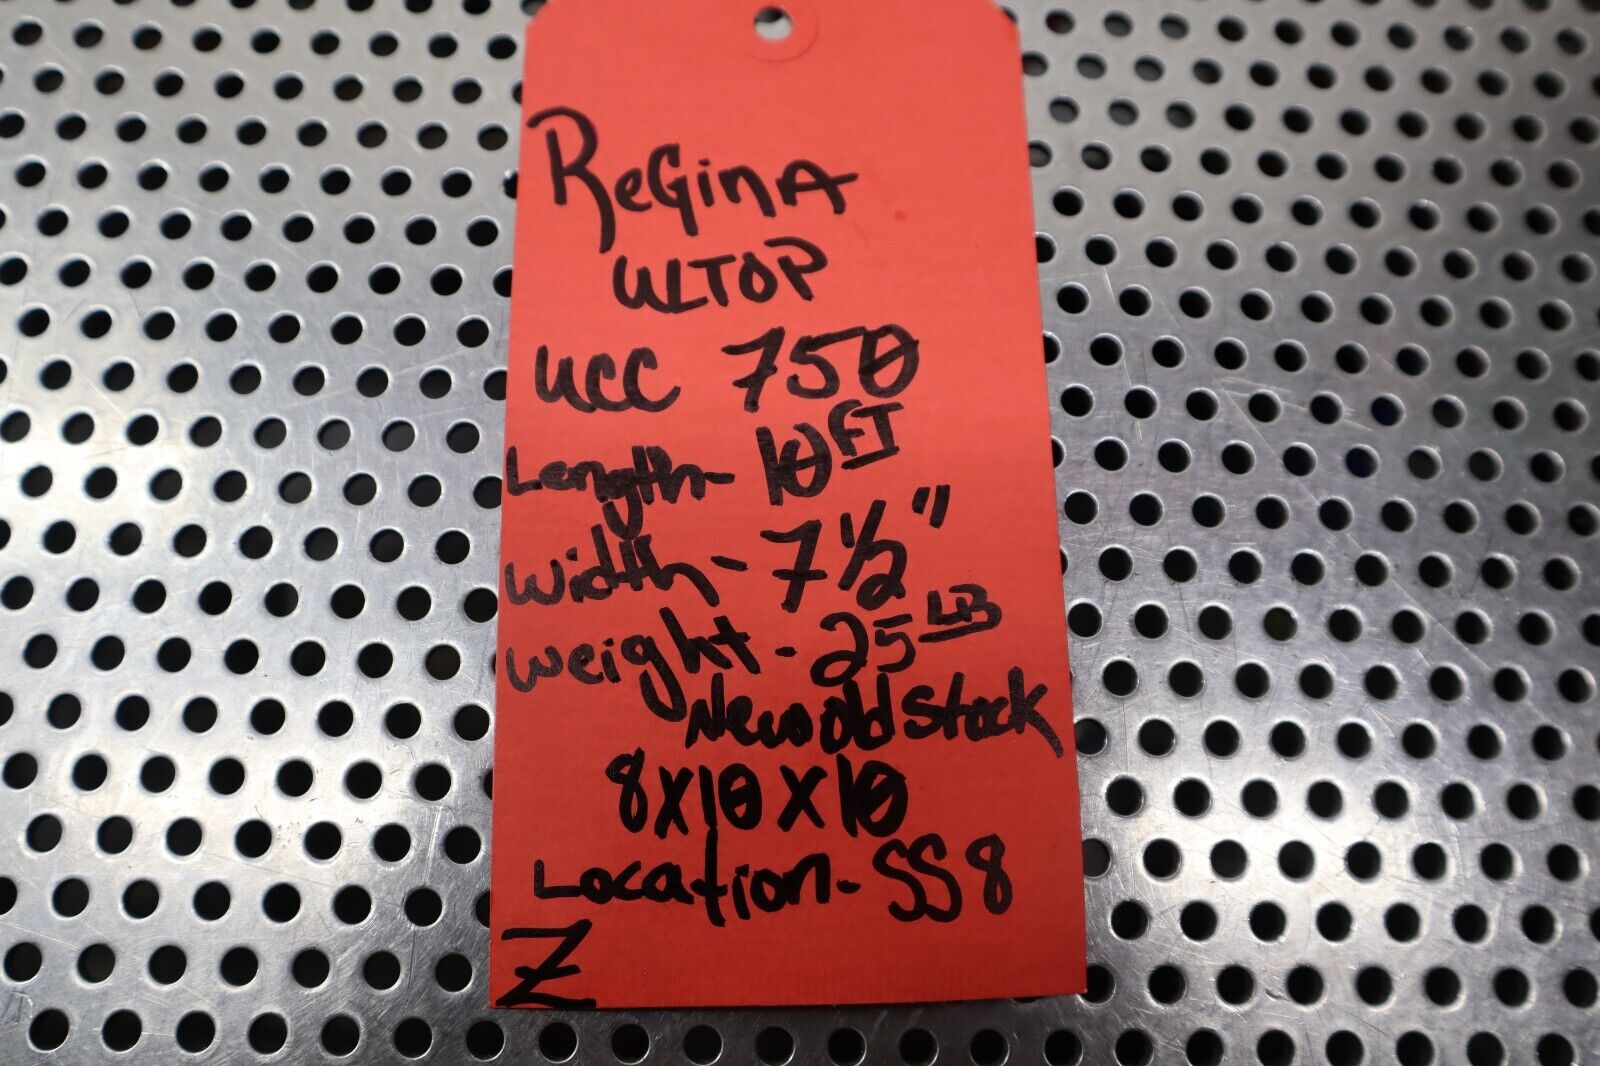 ReGinA
ULTOP
UCC 750
Length- 10 FT
Width- 7 1/2"
Weight- 25 LB
New old Stock
8X10X10
Location- SS8
Z